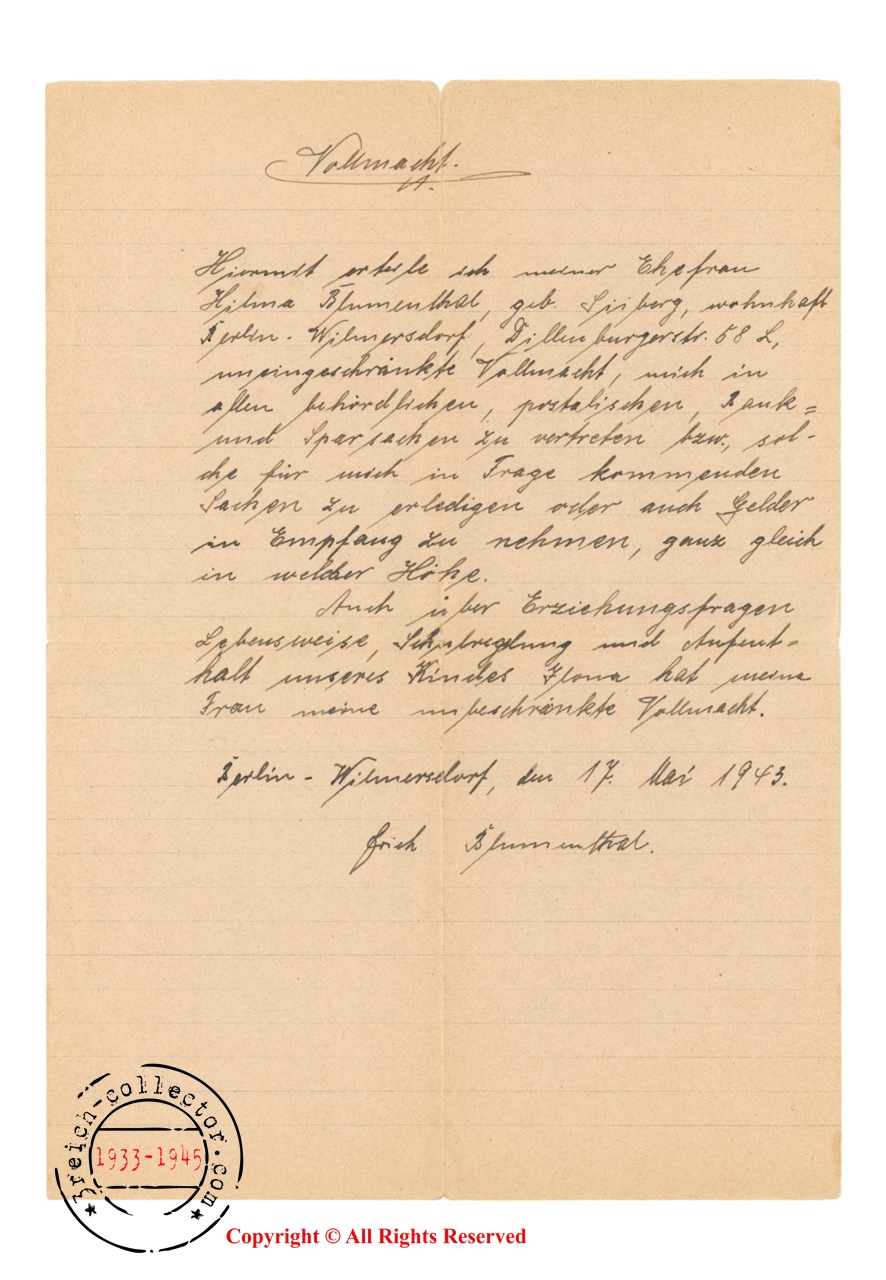 Vollmacht.
Hiermit erteile ich meiner Ehefrau
Hilma Blumenthal, geb. wohnhaft
Berlin - Wilmersdorf, Dillenburgerstr. 58
uneingeschränkte Vollmacht, mich in
allen behördlichen, postalischen, Bank=
und Sparsachen zu vertreten bzw., sol-
che für mich in Frage kommenden
Sachen zu erledigen oder auch Gelder
in Empfang zu nehmen, ganz gleich
in welcher Höhe.
Auch über Erziehungsfragen
Lebensweise, Schulreglung und Aufent=
halt unseres Kindes Ilona hat meine
Frau meine unbeschränkte Vollmacht.
Berlin - Wilmersdorf, den 17. Mai 1943.
Erich Blumenthal.
3reich-collector.com
1933-1945
Copyright © All Rights Reserved